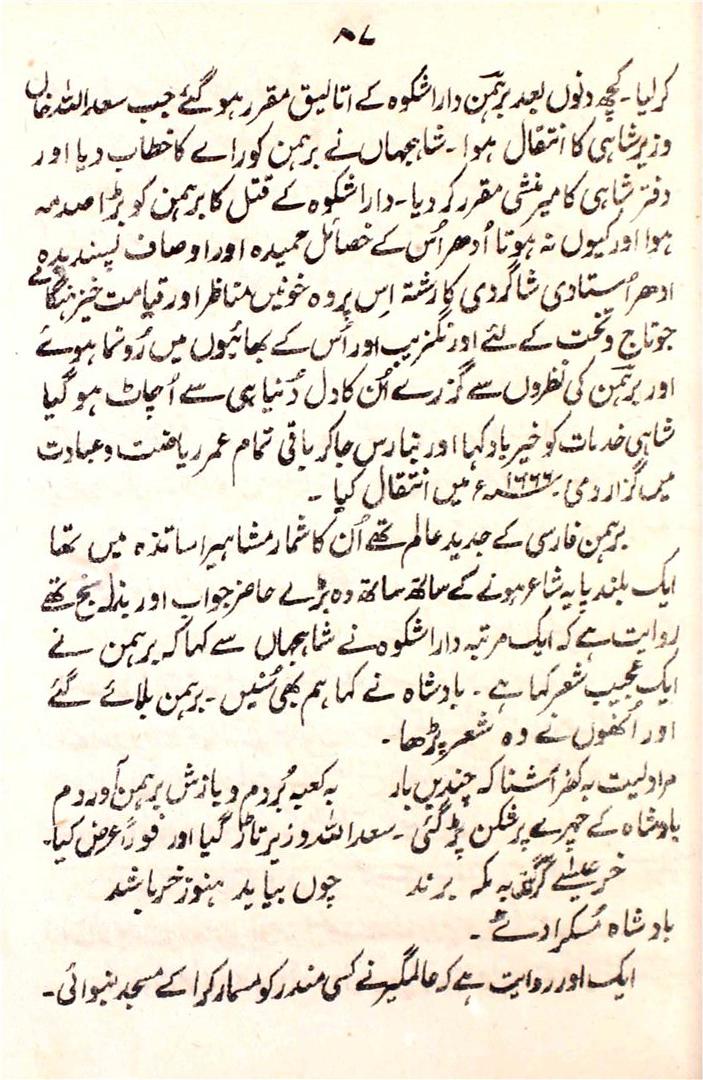 ۸۷
کرلیا۔ کچھ دنوں بعد برہمن داراشکوہ کے اتالیق مقرر ہوگئے جب سعداللہ خاں
وزیر شاہی کا انتقال ہوا۔ شاہجہاں نے برہمن کو رائے کا خطاب دیا اور
دفتر شاہی کا میر منشی مقرر کر دیا۔ داراشکوہ کے قتل کا برہمن کو بڑا صدمہ
ہوا اور کیوں نہ ہوتا اُدھر اُس کے خصائل حمیدہ اور اوصاف پسندیدہ
ادھر اُستادی شاگردی کا رشتہ اِس پر وہ خونیں مناظر اور قیامت خیز ہنگامے
جو تاج و تخت کے لئے اورنگزیب اور اُس کے بھائیوں میں رُونما ہوئے
اور برہمن کی نظروں سے گزرے اُن کا دل دُنیا ہی سے اُچاٹ ہو گیا
شاہی خدمات کو خیرباد کہا اور بنارس جاکر باقی تمام عمر ریاضت و عبادت
میں گزار دی ۱۶۶۶ء میں انتقال کیا ۔
برہمن فارسی کے جدید عالم تھے اُن کا شمار مشاہیر اساتذہ میں تھا
ایک بلند پایہ شاعر ہونے کے ساتھ ساتھ وہ بڑے حاضر جواب اور بذلہ سنج تھے
روایت ہے کہ ایک مرتبہ داراشکوہ نے شاہجہاں سے کہا کہ برہمن نے
ایک عجیب شعر کہا ہے ۔ بادشاہ نے کہا ہم بھی سُنیں ۔ برہمن بلائے گئے
اور اُنھوں نے وہ شعر پڑھا۔
مرا دلیست بہ کفر آشنا کہ چندیں بار بہ کعبہ بُردم و بازش برہمن آوردم
بادشاہ کے چہرے پر شکن پڑ گئی ۔ سعداللہ وزیر تاڑ گیا اور فوراً عرض کیا۔
خر عیسےٰ گرش بہ مکہ برند چوں بیاید ہنوز خر باشد
بادشاہ مُسکرا دئے ۔
ایک اور روایت ہے کہ عالمگیر نے کسی مندر کو مسمار کرا کے مسجد بنوائی ۔